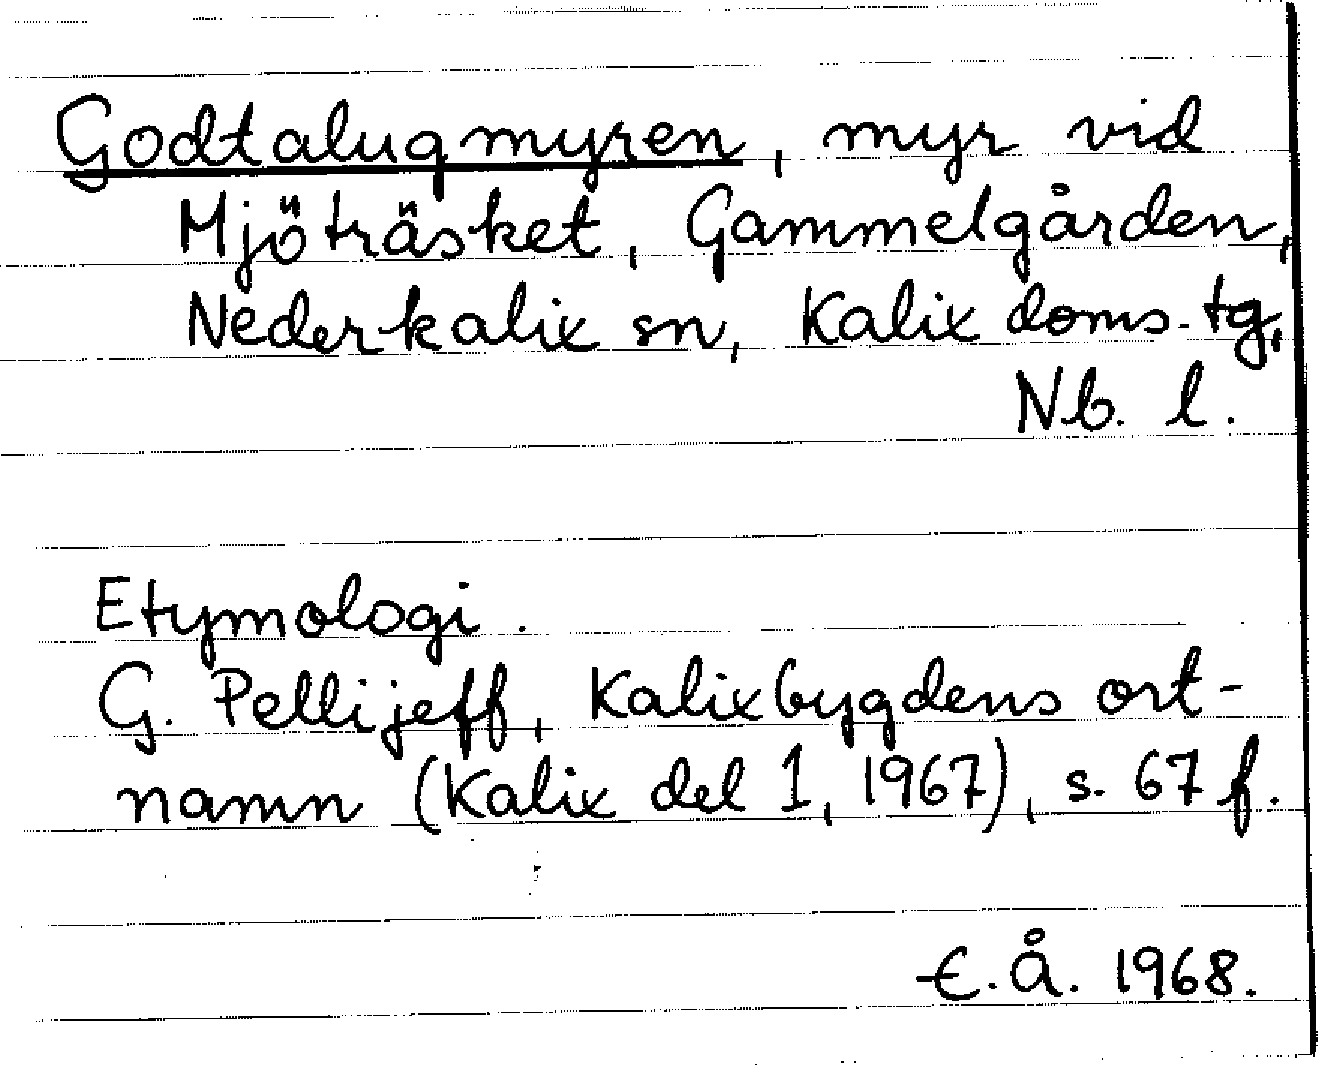 Godtalugmyren, myr vid
Mjöträsket, Gammelgården,
Nederkalix sn, Kalix doms. tg,
Nb. l.
Etymologi.
G. Pellijeff, Kalixbygdens ort-
namn (Kalix del 1, 1967), s. 67 f.
E.Å. 1968.